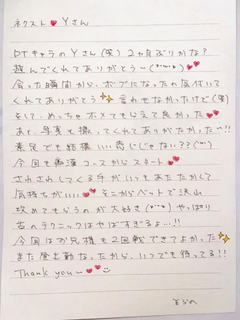 ネクスト♥Yさん
DTキャラのYさん(笑)2ヶ月ぶりかな?
遊んでくれてありがとう〜(*'ω'*)💕
会った瞬間から、ボブになったの気付いて
くれてありがとう✨言わせなかったけど(笑)
そして、めっちゃホメてもらえて良かった
あと、写真も撮ってくれてありがたかった〜!!
素足でも結構いい感じじゃない??
今回も無演コースからスタート💕
されさしてくる手がいつもあたたかくて
気持ちがいい♥そこからベットで沢山
攻めてもらうのが大好き やっぱり
舌のテクニックはやばすぎるよ…!!
今回はお兄様も2回戦できてよかった✨
また度出動なったから、いつでも待ってる!!
Thank you〜💕☺